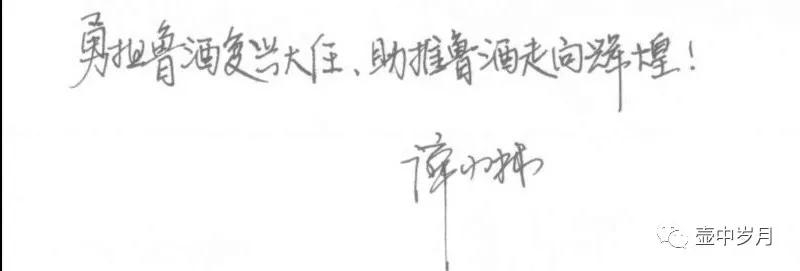 勇担鲁酒复兴大任、助推鲁酒走向辉煌！
壶中岁月